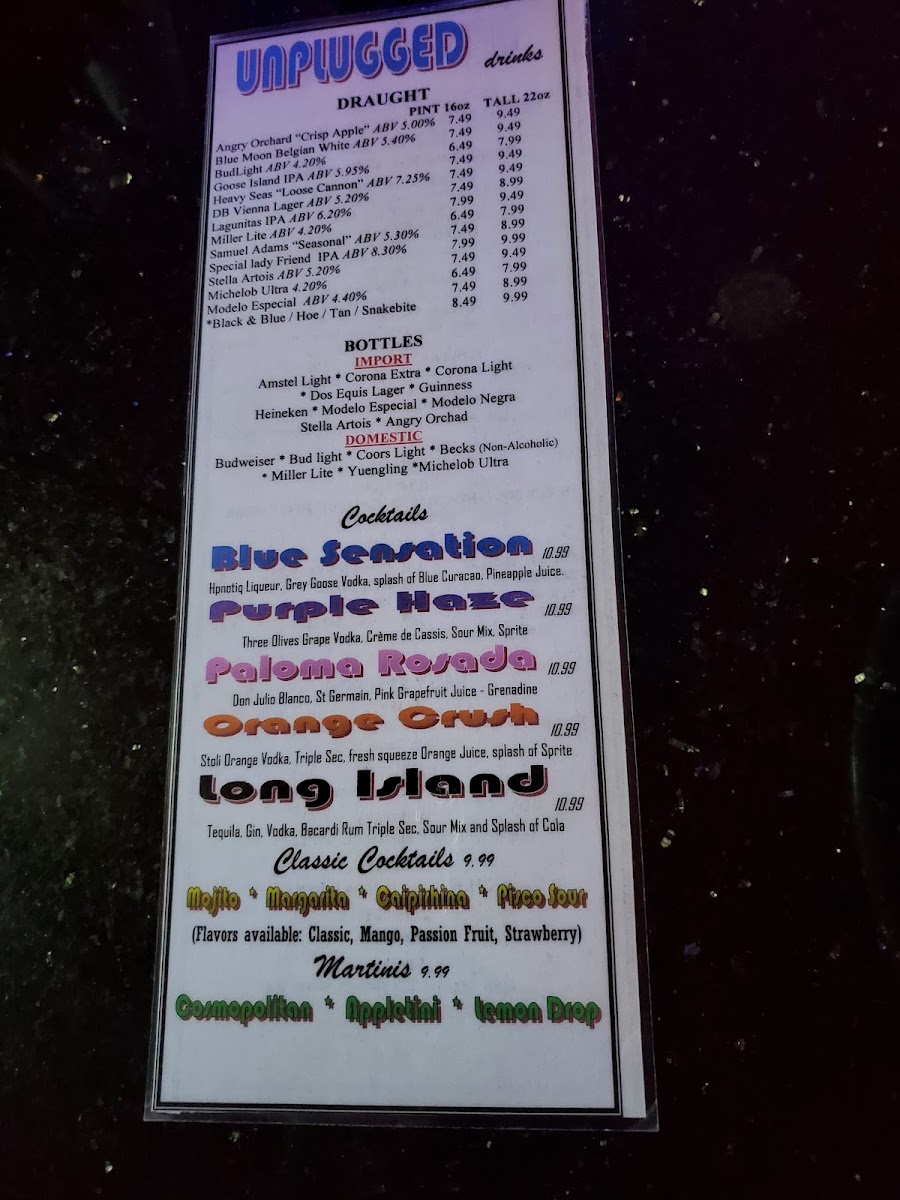 UNPLUGGED drinks
DRAUGHT
PINT 16oz TALL 22oz
Angry Orchard “Crisp Apple” ABV 5.00% 7.49 9.49
Blue Moon Belgian White ABV 5.40% 7.49 9.49
BudLight ABV 4.20% 6.49 7.99
Goose Island IPA ABV 5.95% 7.49 9.49
Heavy Seas “Loose Cannon” ABV 7.25% 7.49 9.49
DB Vienna Lager ABV 5.20% 7.49 8.99
Lagunitas IPA ABV 6.20% 7.99 9.49
Miller Lite ABV 4.20% 6.49 7.99
Samuel Adams “Seasonal” ABV 5.30% 7.49 8.99
Special lady Friend IPA ABV 8.30% 7.99 9.99
Stella Artois ABV 5.20% 7.49 9.49
Michelob Ultra 4.20% 6.49 7.99
Modelo Especial ABV 4.40% 7.49 8.99
*Black & Blue / Hoe / Tan / Snakebite 8.49 9.99
BOTTLES
IMPORT
Amstel Light * Corona Extra * Corona Light
* Dos Equis Lager * Guinness
Heineken * Modelo Especial * Modelo Negra
Stella Artois * Angry Orchad
DOMESTIC
Budweiser * Bud light * Coors Light * Becks (Non-Alcoholic)
* Miller Lite * Yuengling *Michelob Ultra
Cocktails
Blue Sensation 10.99
Hpnotiq Liqueur, Grey Goose Vodka, splash of Blue Curacao, Pineapple Juice.
Purple Haze 10.99
Three Olives Grape Vodka, Crème de Cassis, Sour Mix, Sprite
Paloma Rosada 10.99
Don Julio Blanco, St Germain, Pink Grapefruit Juice - Grenadine
Orange Crush 10.99
Stoli Orange Vodka, Triple Sec, fresh squeeze Orange Juice, splash of Sprite
Long Island 10.99
Tequila, Gin, Vodka, Bacardi Rum Triple Sec, Sour Mix and Splash of Cola
Classic Cocktails 9.99
Mojito * Margarita * Caipirhina * Pisco Sour
(Flavors available: Classic, Mango, Passion Fruit, Strawberry)
Martinis 9.99
Cosmopolitan * Appletini * Lemon Drop